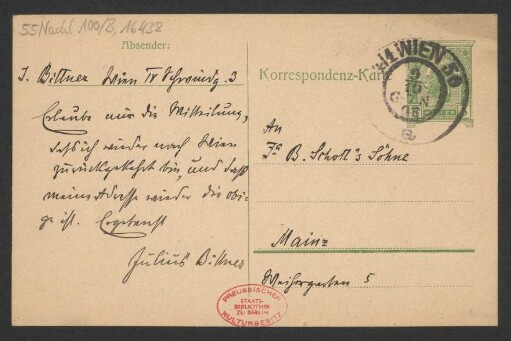 55 Nachl 100/B, 16438
Absender:
J. Bittner Wien IV Schwindg. 3
Erlaube mir die Mitteilung,
daß ich wieder nach Wien
zurückgekehrt bin, und daß
meine Adresse wieder die obi-
ge ist. Ergebenst
Julius Bittner
Korrespondenz-Kar
WIEN 50
9
IX
08
An
Fa B. Schott's Söhne
Mainz
Weihergarten 5
PREUSSISCHER
STAATS-
BIBLIOTHEK
ZU BERLIN
KULTURBESITZ